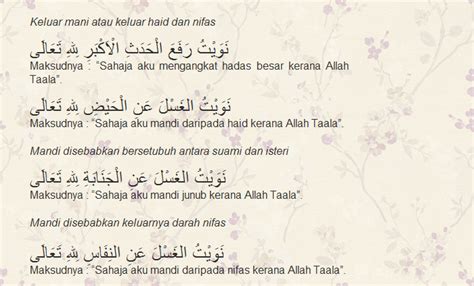 Keluar mani atau keluar haid dan nifas
نَوَيْتُ رَفَعَ الْحَدَثِ الْأَكْبَرِ لِلهِ تَعَالٰى
Maksudnya : "Sahaja aku mengangkat hadas besar kerana Allah
Taala".
نَوَيْتُ الغَسْلَ عَنِ الْحَيْضِ لِلهِ تَعَالٰى
Maksudnya : "Sahaja aku mandi daripada haid kerana Allah Taala".
Mandi disebabkan bersetubuh antara suami dan isteri
نَوَيْتُ الغَسْلَ عَنِ الْجَنَابَةِ لِلهِ تَعَالٰى
Maksudnya : "Sahaja aku mandi junub kerana Allah Taala".
Mandi disebabkan keluarnya darah nifas
نَوَيْتُ الغَسْلَ عَنِ النِفَاسِ لِلهِ تَعَالٰى
Maksudnya : "Sahaja aku mandi daripada nifas kerana Allah Taala".